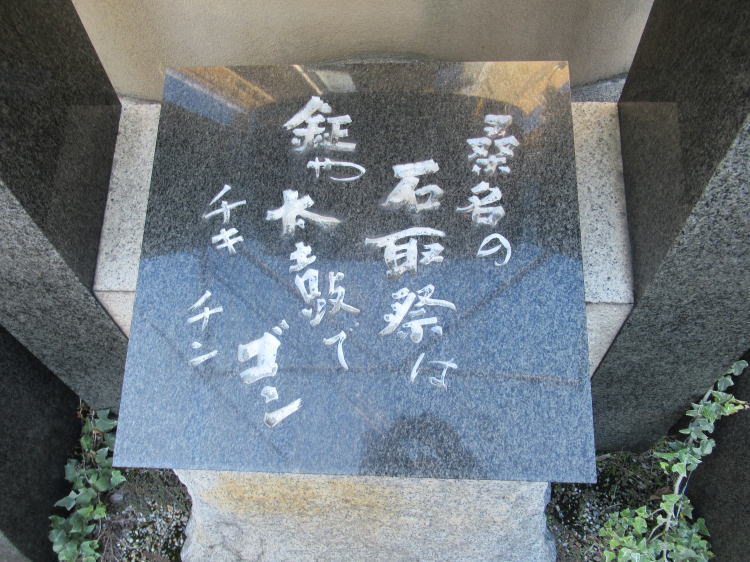 桑名の
石取祭は
鉦や
太鼓で
ゴン
チキ
チン